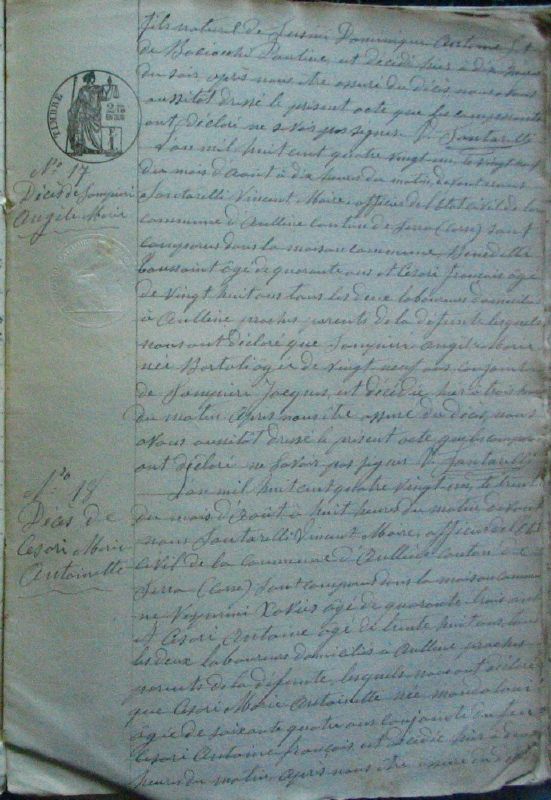 fils naturel de Dominique Antoine et
de Bociocchi Pauline, est décédé hier à dix heures
du soir après nous être assuré du décès, nous avons
aussitôt dressé le présent acte que les comparants
ont déclaré ne savoir pas signer Santarelli
TIMBRE
N° 17
Décès de Sampieri
Angèle Marie
L'an mil huit cent quatre vingt un le vingt
du mois d'Août à dix heures du matin, devant nous
Santarelli Vincent Maire, officier de l'état civil de la
commune d'Aullène canton de Serra (Corse) sont
comparus dans la maison commune, Benedetti
Toussaint âgé de quarante ans et Cesari François âgé
de vingt huit ans tous les deux laboureurs domiciliés
à Aullène proches parents de la défunte, lesquels
nous ont déclaré que Sampieri Angèle Marie
née Bartoli âgée de vingt neuf ans, conjointe
de Sampieri Jacques, est décédée hier à trois heures
du matin. Après nous être assuré du décès, nous
avons aussitôt dressé le présent acte que les comparants
ont déclaré ne savoir pas signer Santarelli
N° 18
Décès de
Cesari Marie
Antoinette
L'an mil huit cent quatre vingt un, le trente
du mois d'Août à huit heures du matin devant
nous Santarelli Vincent Maire, officier de l'état
civil de la commune d'Aullène canton de
Serra (Corse) sont comparus dans la maison commu
ne Xavier âgé de quarante trois ans
et Cesari Antoine âgé de trente huit ans, tous
les deux laboureurs domiciliés à Aullène proches
parents de la défunte, lesquels nous ont déclaré
que Cesari Marie Antoinette née
âgée de soixante quatre ans conjointe du feu
Cesari Antoine François est décédée hier à
heures du matin, après nous être assuré du décès